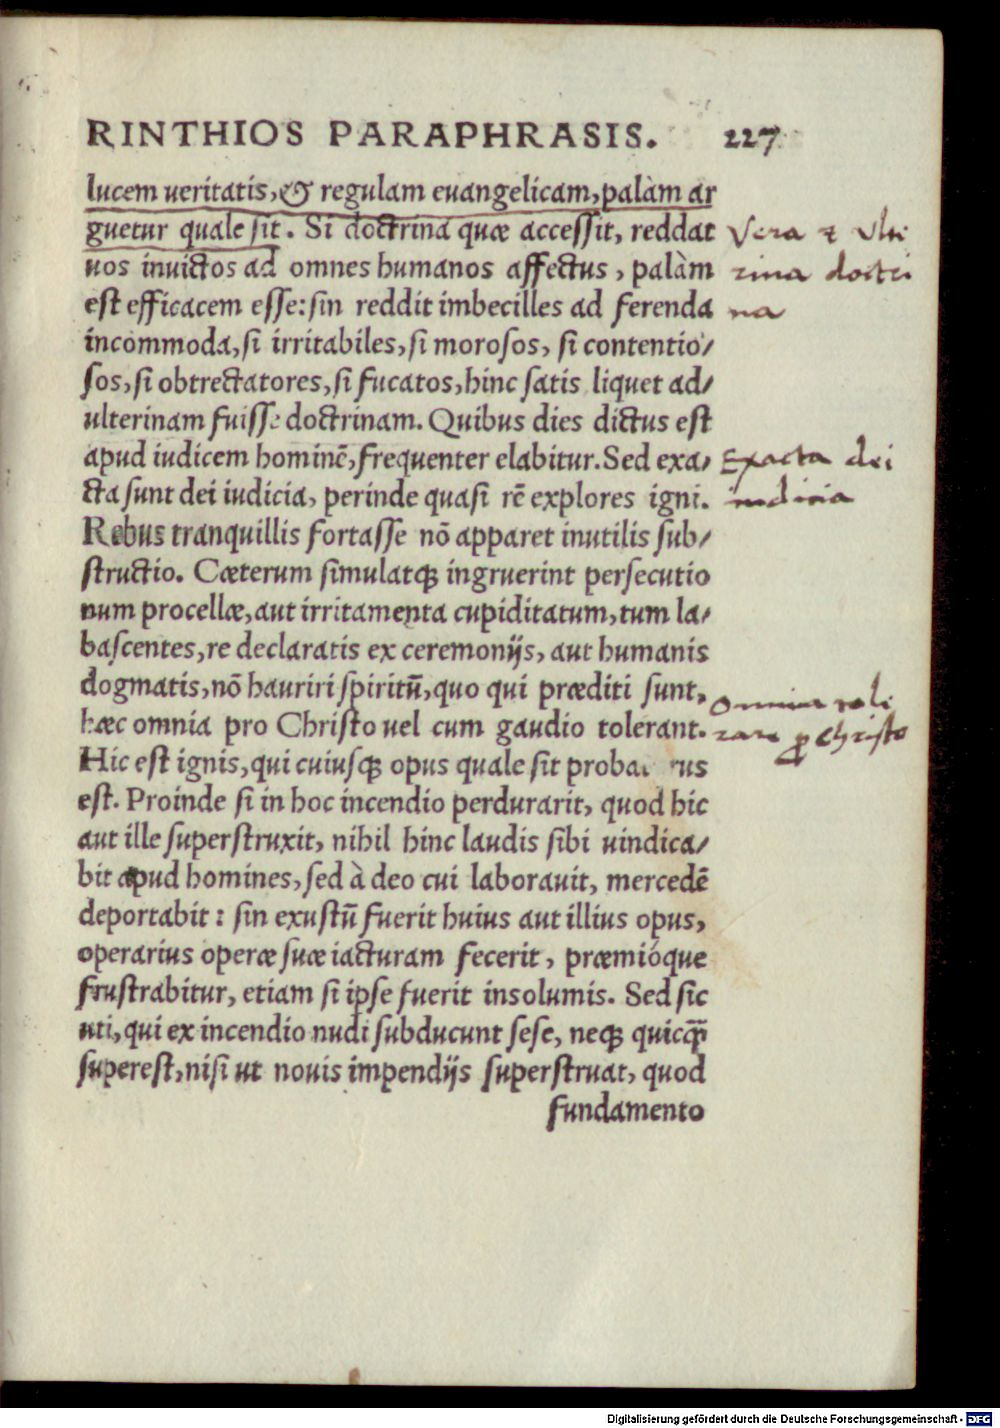 RINTHIOS PARAPHRASIS. 227
lucem ueritatis, & regulam euangelicam, palàm ar
guetur quale sit. Si doctrina quæ accessit, reddat
uos inuictos ad omnes humanos affectus, palàm
est efficacem esse: sin reddit imbecilles ad ferenda
incommoda, si irritabiles, si morosos, si contentio/
sos, si obtrectatores, si fucatos, hinc satis liquet ad/
ulterinam fuisse doctrinam. Quibus dies dictus est
apud iudicem hominē, frequenter elabitur. Sed exa/
cta sunt dei iudicia, perinde quasi rē explores igni.
Rebus tranquillis fortasse nō apparet inutilis sub/
structio. Cæterum simulatq; ingruerint persecutio
num procellæ, aut irritamenta cupiditatum, tum la/
bascentes, re declaratis ex ceremonijs, aut humanis
dogmatis, nō hauriri spiritū, quo qui præditi sunt,
hæc omnia pro Christo uel cum gaudio tolerant.
Hic est ignis, qui cuiusq; opus quale sit probaturus
est. Proinde si in hoc incendio perdurarit, quod hic
aut ille superstruxit, nihil hinc laudis sibi uindica/
bit apud homines, sed à deo cui laborauit, mercedē
deportabit: sin exustū fuerit huius aut illius opus,
operarius operæ suæ iacturam fecerit, præmióque
frustrabitur, etiam si ipse fuerit insolumis. Sed sic
uti, qui ex incendio nudi subducunt sese, neq; quicq̄
superest, nisi ut nouis impendijs superstruat, quod
fundamento
Vera &
doctri
na
Exacta dei
iudicia
Omnia
p Christo
Digitalisierung gefördert durch die Deutsche Forschungsgemeinschaft - DFG